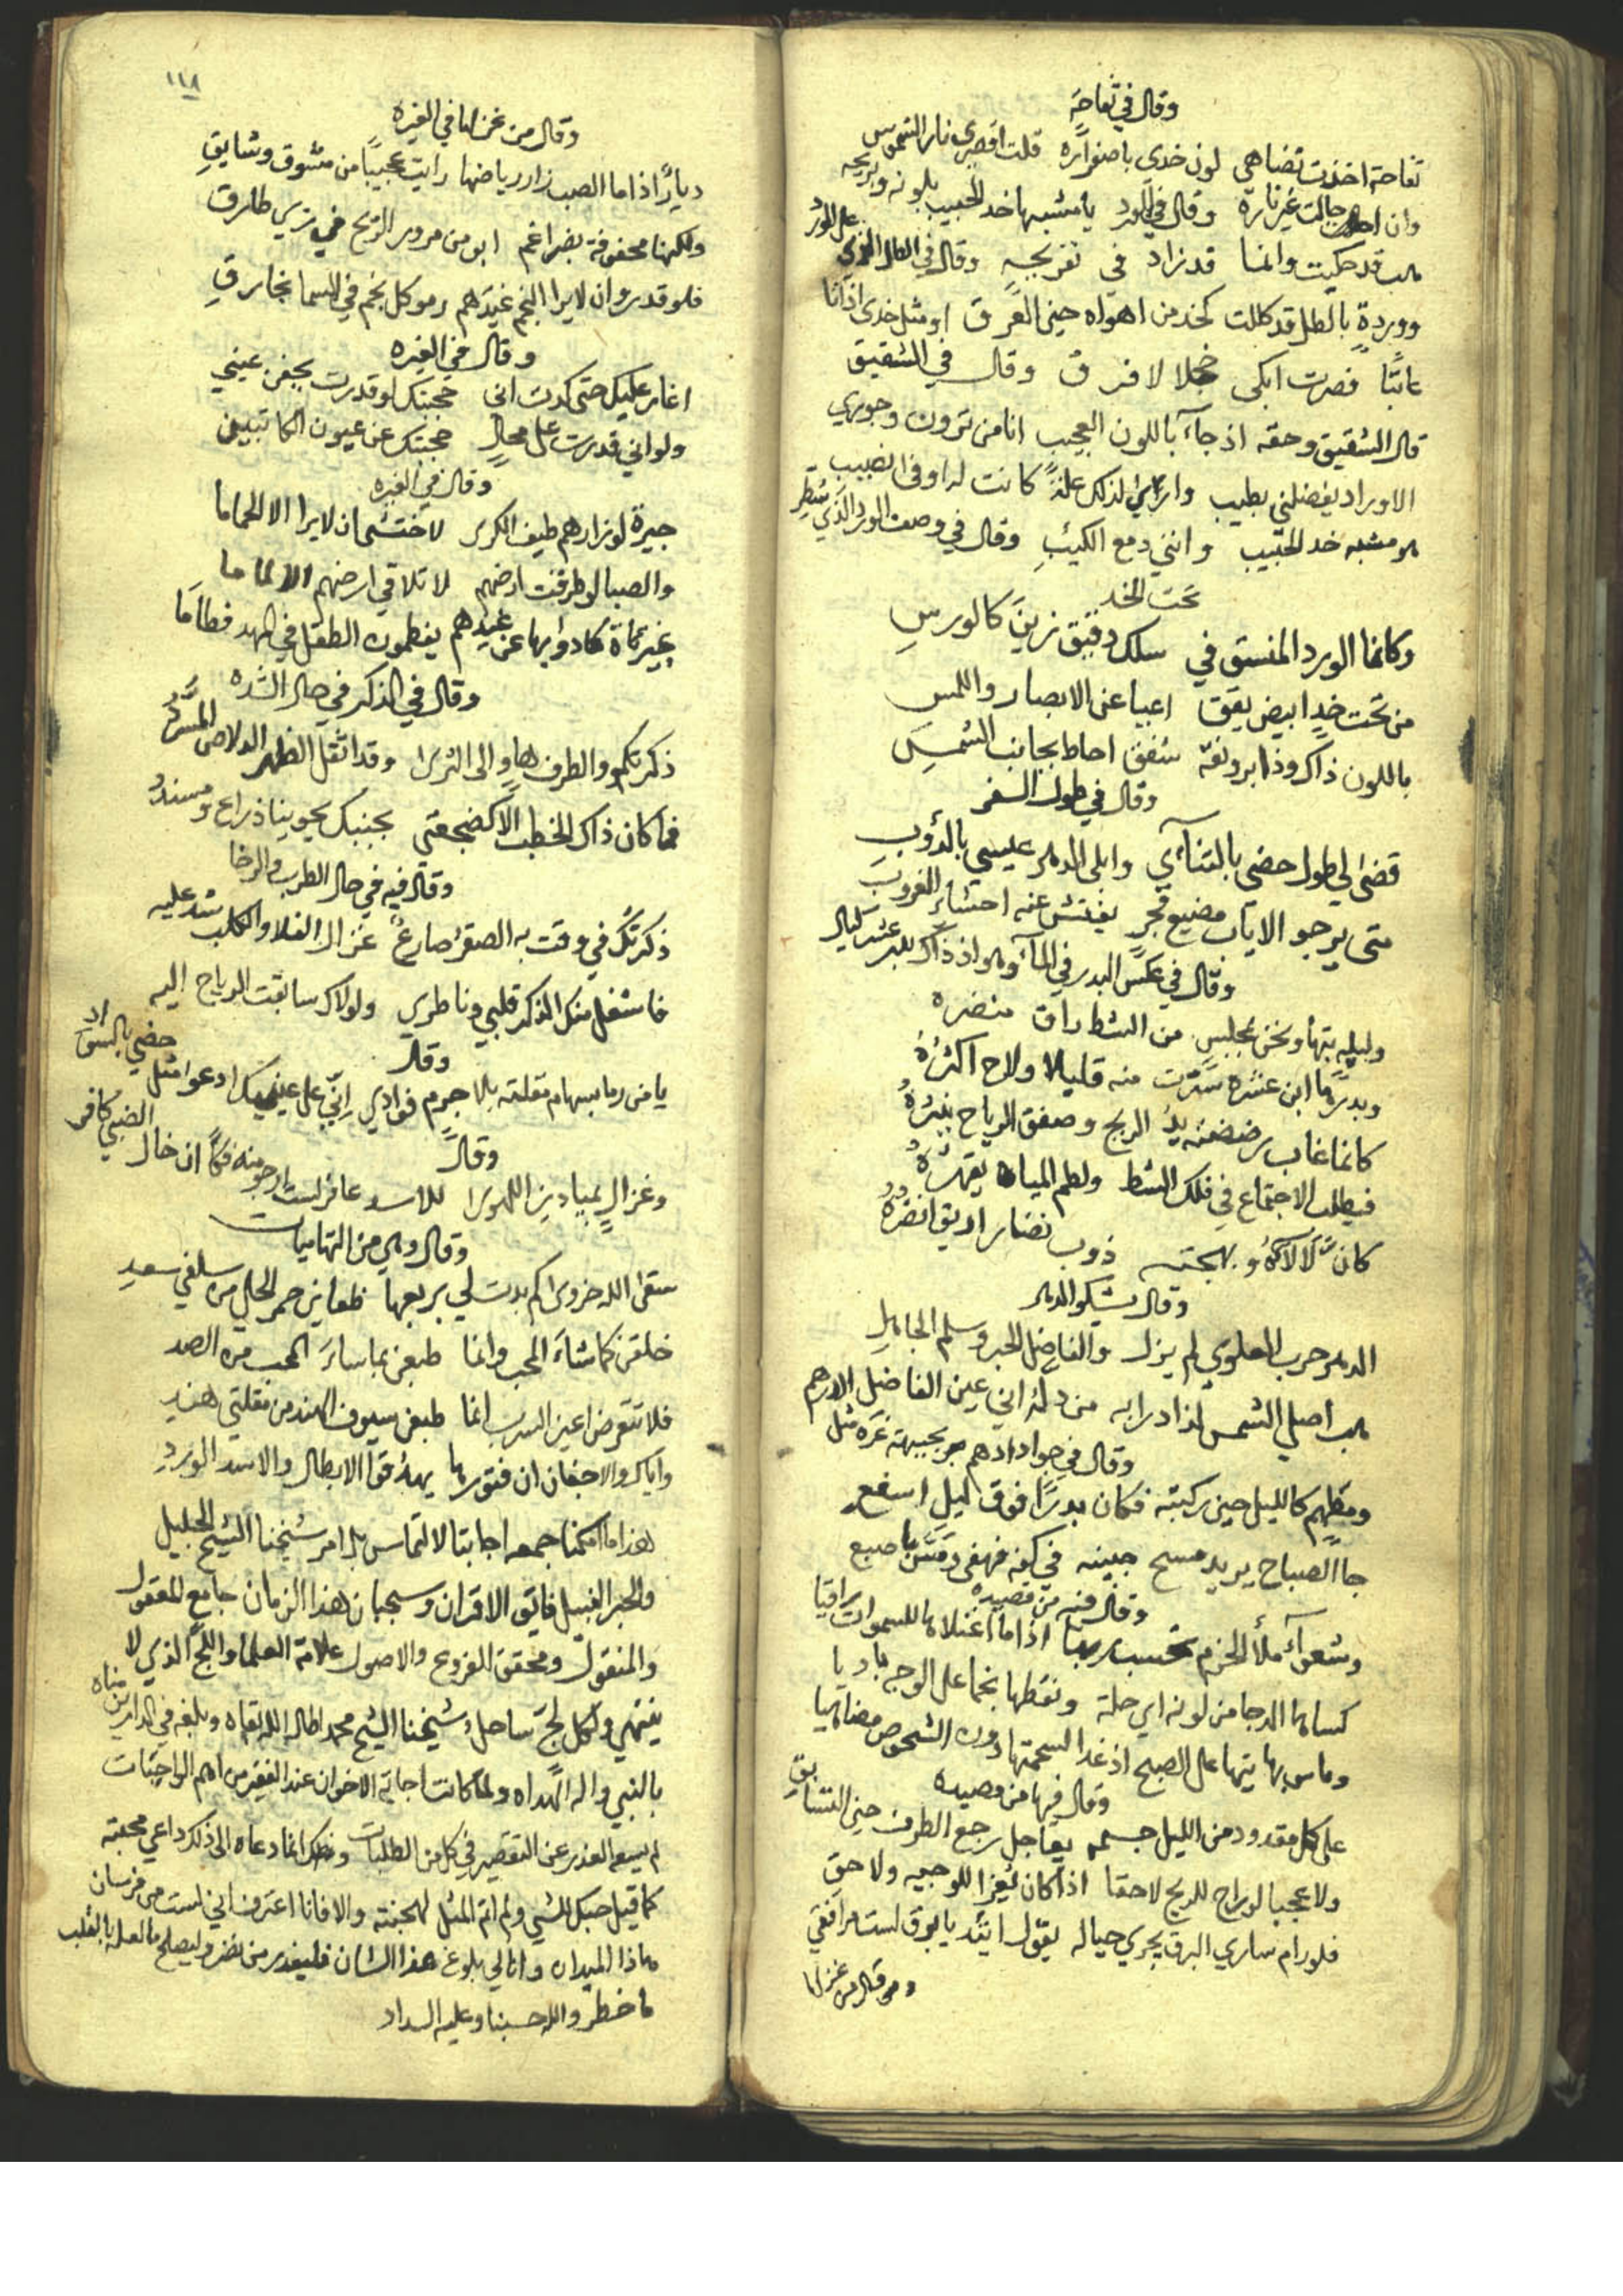 وقال في تفاحة
تفاحة اخذت تضاهي لون خدى باصفراره قلت اقصرى نار الشموس
وان جالت غير ناره وقال في الورد يا مشبها خد الحبيب بلونه وبريحه
قد حكيت وانما قد زاد في تفريجه وقال في الطل الذي على الورد
ووردة بالطل قد كللت كخد من اهواه حين العرق او مثل خدى اذ انا
عاتبا فصرت ابكى خجلا لا فرق وقال في الشقيق
قال الشقيق وحقه اذ جآء باللون العجيب انا من ترون وجوري
الاوراد يفضلني بطيب وارى لذلك علة كانت له اوفى نصيب
هو مشبه خد الحبيب وانني دمع الكئيب وقال في وصف الورد الذي شطر
تحت الخد
وكانما الورد المنسق في سلك دقيق زين كالورس
من تحت خد ابيض يقق اعيا عن الابصار واللمس
باللون ذاك وذا برونقه شفق احاط بجانب الشمس
وقال في طول السفر
قضى لي طول حضى بالتنآءي وابلى الدهر عيسى بالدؤوب
متى يرجو الاياب مضيع فجر يفتش عنه احشاء الغروب
وقال في عكس البدر في المآء وهو اذ ذاك بدر عشر ليال
وليلة بتها ونحن بمجلس من الشط راق منضره
وبدرها ابن عشرة سترت منه قليلا ولاح اكثره
كانما غاب رضضته يد الريح وصفق الرياح ينثره
فيطلب الاجتماع في فلك الشط ولطم المياه يقهره
كان لألآءه وبهجته ذوب نضار اريق انضره
وقال يشكو الدهر
الدهر حرب للعلوي لم يزل والفاضل الحبر وسلم الجاهل
هب اصلي الشمس لذا درا به من دله اني عين الفاضل
وقال في جواد ادهم بجبهته غره مثل الدرهم
ومطهم كالليل حين ركبته فكان بدرا فوق ليل اسفع
جا الصباح يريد مسح جبينه في كفه فهفى ومسن باصبع
وقال فيه من قصيده
وشعوآء ملأ الحزم تحسب ربها اذا ما اعتلاها للسموات راقيا
كساها الدجا من لونه اي حلة ونقطها نجما على الوجه باديا
وماس بها يتها على الصبح اذ غدا لسحمتها دون الشخوص مضاهيا
وقال فيها من قصيده
على كل مقدود من الليل جسمه يعاجل رجع الطرف حين التسابق
ولا عجبا لو راح للريح لاحقا اذا كان يعزا للوجيه ولاحق
فلو رام ساري البرق يجري حياله يقول اتئد يا برق لست مرافقي
وقال من غزلها
١١٨
وقال من غزلها في الغيره
ديار اذا ما الصب زار رياضها رايت عجيبا من مشوق وشايق
ولكنها محفوفة بضراغم ابو من مرور الريح في زي طارق
فلو قدروا ان لا يرا النجم غيدهم رموا كل نجم في السما بخارق
وقال في الغيره
اغار عليك حتى كدت انى حجبتك لو قدرت بجفن عيني
ولو اني قدرت على محال حجبتك عن عيون الكاتبين
وقال في الغيره
جيرة لو زارهم طيف الكرى لاختشى ان لا يرا الا لحماما
والصبا لو طرقت ارضهم لا تلاقي ارضهم الا لماما
غير كماة كادوا بها عن غيدهم يفطمون الطفل في المهد فطاما
وقال في الذكر في حال الشده
ذكرتكم والطرف هاو الى الثرى وقد اثقل الظهر الدلاص المسرد
فما كان ذاك الخطب الا كضجعتى بجنبك يحوينا ذراع ومسند
وقال فيه في حال الطرب والرخا
ذكرتك في وقت به الصقر صارع غزال الفلا والكلب شد عليه
فاشغل منك الذكر قلبي وناطري ولولاك سابقت الرياح اليه
وقال
يا من رما بسهام مقلته بلا جرم فوادي اني على عينيك ادعو مثل حضي بالسواد
وقال
وغزال بميادين اللهو يرا للاسد عاقر لست ارجو منه فكا ان خال الضبي كافر
وقال وهي من التهاميات
سقى الله حزوى كم بدت لي بربعها ظعاين حمر الحلي من سلفي سعد
خلقن كما شآء المحب وانما طبعن بما سآء المحب من الصد
فلا تتعرض اعين السرب انما طبعن سيوف الهند من مقلتي هند
واياك والاجفان ان فتورها يهد قوا الابطال والاسد الورد
هذا ما امكننا جمعه اجابتا لالتماس بل امر شيخنا الشيخ الجليل
والحبر النبيل فايق الاقران وسحبان هذا الزمان جامع المعقول
والمنقول ومحقق الفروع والاصول علامة العلما واللج الذي لا
ينتهي ولكل لج ساحل شيخنا الشيخ محمد اطال الله بقاه وبلغه في الدارين مناه
بالنبي واله الهداه ولما كانت اجابة الاخوان عند الفقير من اهم الواجبات
لم يسع العذر عن التقصير في كل من الطلبات وذلك انما دعاه الى ذلك داعي محبته
كما قيل حبك للشي ولم اتم المثل لهجنته والا فانا اعترف اني لست من فرسان
هاذا الميدان وانى لي بلوغ هذا الشان فليعذر من نضر وليصلح ما لعله بالقلب
ما خطر والله حسبنا وعليه السداد